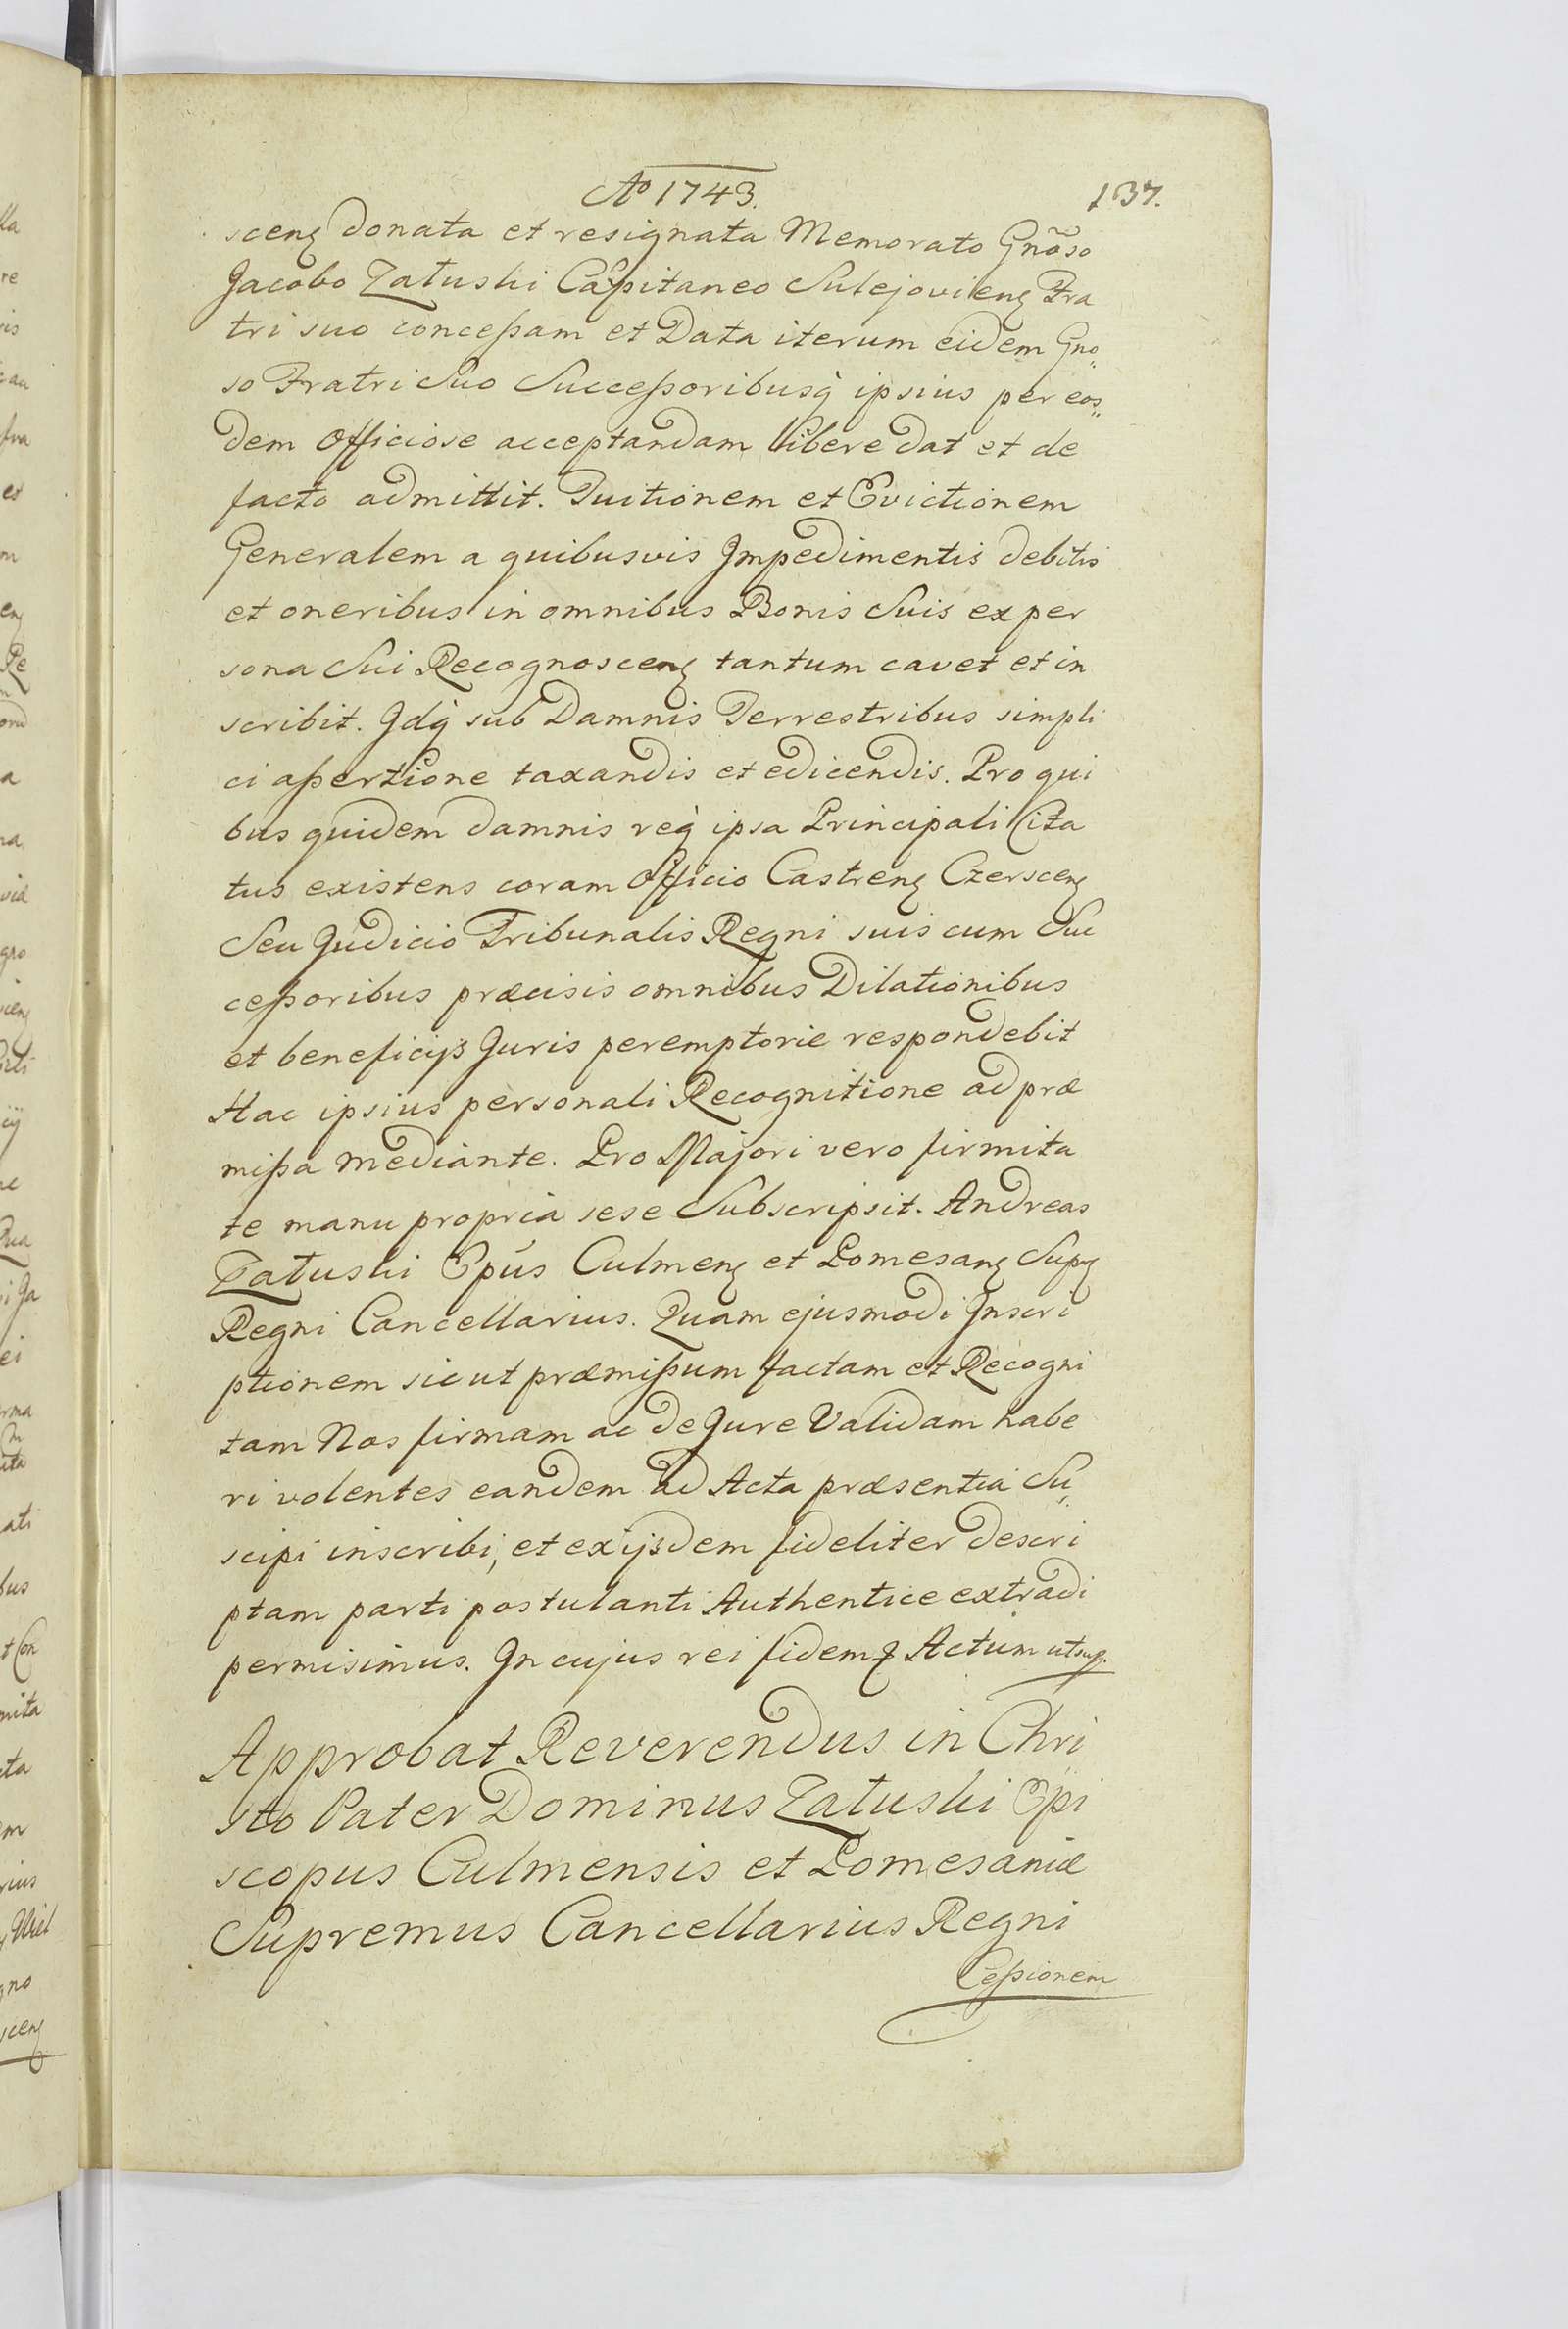 Aº 1743.
137.
scenꝫ donata et resignata Memorato Gnõso
Jacobo Załuski Capitaneo Sulejovienꝫ Fra
tri suo conceßam et Data iterum eidem Gno„
so Fratri Suo Succeßoribusq̀ ipsius per eos„
dem Officiose acceptandam libere dat et de
facto admittit. Tuitionem et Evictionem
Generalem a quibusvis Impedimentis debitis
et oneribus in omnibus Bonis Suis ex per
sona Sui Recognoscenꝫ tantum cavet et in
scribit. Idq̀ sub Damnis Terrestribus simpli
ci aßertione taxandis et edicendis. Pro qui
bus quidem damnis req̀ ipsa Principali Cita
tus existens coram Officio Castrenꝫ Czerscenꝫ
Seu Judicio Tribunalis Regni suis cum Suc
ceßoribus præcisis omnibus Dilationibus
et beneficijs Juris peremptorie respondebit
Hac ipsius personali Recognitione ad præ
mißa mediante. Pro Majori vero firmita
te manu propria sese Subscripsit. Andreas
Załuski Epús Culmenꝫ et Pomesanꝫ Supꝫ
Regni Cancellarius. Quam ejusmodi Inscri
ptionem sicut præmißum factam et Recogni
tam Nos firmam ac de Jure Validam habe
ri volentes eandem ad Acta præsentia Su„
scipi inscribi, et ex ijsdem fideliter descri
ptam parti postulanti Authentice extradi
permisimus. In cujus rei fidemꝫ Actum ut sup.
Approbat Reverendus in Chri
sto Pater Dominus Załuski Epi
scopus Culmensis et Pomesaniæ
Supremus Cancellarius Regni
Ceßionem